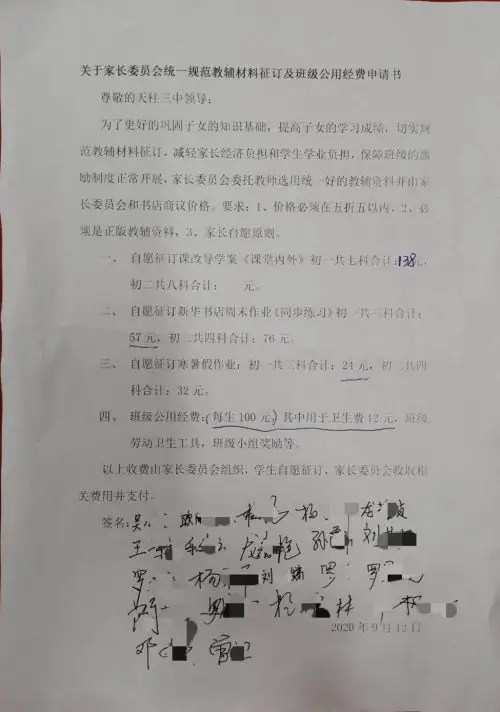 关于家长委员会统一规范教辅材料征订及班级公用经费申请书
尊敬的天柱三中领导：
为了更好的巩固子女的知识基础，提高子女的学习成绩，切实规
范教辅材料征订，减轻家长经济负担和学生学业负担，保障班级的激
励制度正常开展，家长委员会委托教师选用统一好的教辅资料并由家
长委员会和书店商议价格。要求：1、价格必须在五折五以内，2、必
须是正版教辅资料，3、家长自愿原则。
一、 自愿征订课改导学案《课堂内外》初一共七科合计：138元，
初二共八科合计： 元。
二、 自愿征订新华书店周末作业《同步练习》初一共三科合计：
57元，初二共四科合计：76元。
三、 自愿征订寒暑假作业：初一共三科合计：24元，初二共四
科合计：32元。
四、 班级公用经费：（每生100元，）其中用于卫生费12元，班级
劳动卫生工具，班级小组奖励等。
以上收费由家长委员会组织，学生自愿征订，家长委员会收取相
关费用并支付。
签名：吴 杨 龙
王 龙 艳 孙 刘
罗 杨 刘 罗 罗
邓
2020年9月12日